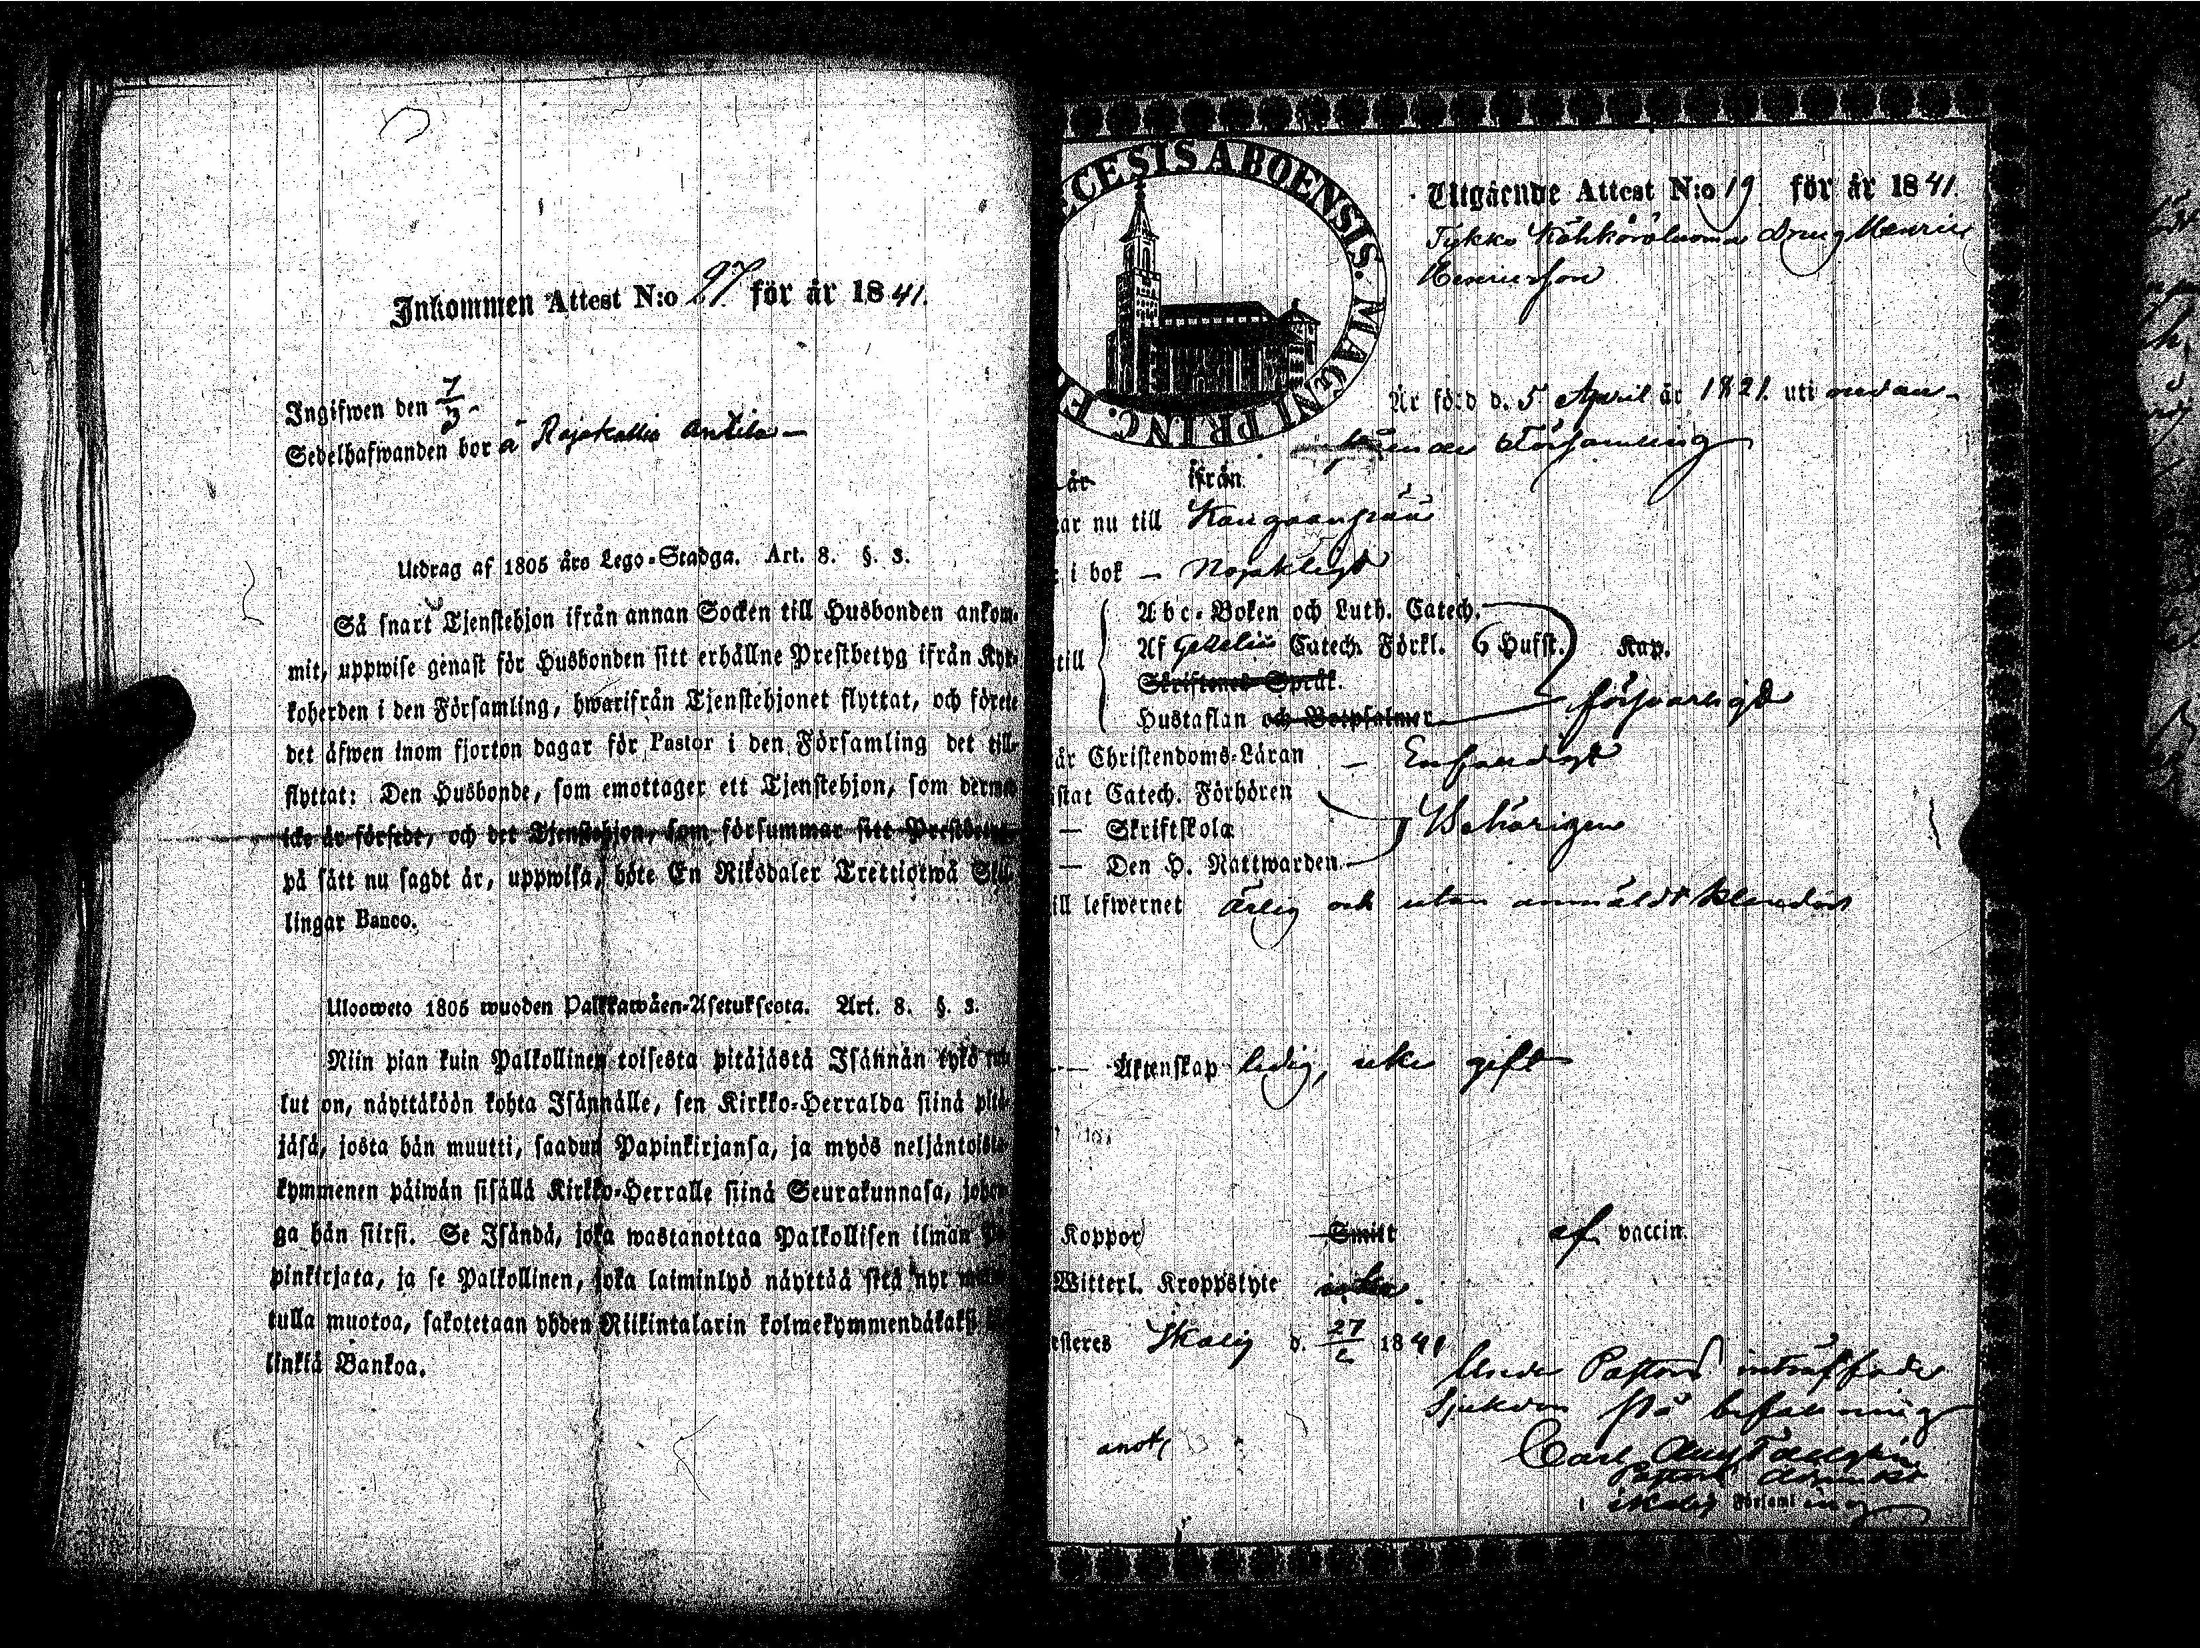 Inkommen Attest N:o 97 för år 1841.
Ingifwen den 7/3
Sedelhafwanden bor å Rajakallio Anttila
Utdrag af 1805 års Lego-Stadga. Art. 8. §. 3.
Så snart Tjenstehjon ifrån annan Socken till Husbonden ankom-
mit, uppwise genast för Husbonden sitt erhållne Prestbetyg ifrån Kyr-
koherden i den Församling, hwarifrån Tjenstehjonet flyttat, och förete
det äfwen inom fjorton dagar för Pastor i den Församling det till-
flyttat: Den Husbonde, som emottager ett Tjenstehjon, som dermed
icke är försedt, och det Tjenstehjon, som försummar sitt Prestbetyg
på sätt nu sagdt är, uppwisa, böte En Riksdaler Trettiotwå Skil-
lingar Banco.
Ulosweto 1805 wuoden Palkkawäen-Asetuksesta. Art. 8. §. 3.
Niin pian kuin Palkollinen toisesta pitäjästä Isännän tykö tul-
lut on, näyttäköön kohta Isännälle, sen Kirkko-Herralda siinä pitä-
jäsä, josta hän muutti, saadun Papinkirjansa, ja myös neljäntoista-
kymmenen päiwän sisällä Kirkko-Herralle siinä Seurakunnasa, johon-
ga hän siirsi. Se Isändä, joka wastanottaa Palkollisen ilman Pa-
pinkirjata, ja se Palkollinen, joka laiminlyö näyttää sitä nyt
tulla muotoa, sakotetaan yhden Riikintalarin kolmekymmendäkaksi
linkiä Bankoa.
ECESIS ABOENSIS. MAGNI PRINC.
Utgående Attest N:o 19 för år 1841.
Tykkö Kähköräluoma Dreng Henric
Henricsson
Är född d. 5 April år 1821. uti
Församling
år ifrån
ar nu till Kangaanpää
i bok — Nöjaktigt
Abc-Boken och Luth. Catech.
till Af Gezelii Catech. Förkl. 6 Hufst. Kap.
Skriftenes Språk.
Hustaflan och Botpsalmer försvarligt
år Christendoms-Läran — Enfaldigt
istat Catech. Förhören
— Skriftskola Behörigen
— Den H. Nattwarden
ill lefwernet ärlig och utan anmäldt klander
Äktenskap ledig, icke gift
Koppor Smitt af vaccin.
Witterl. Kroppslyte icke.
esteres Ikalis d. 27/2 1841
Under Pastors inträffade
Sjukdom På befallning
Carl
Pastors Adjunkt
i Ikalis Församling